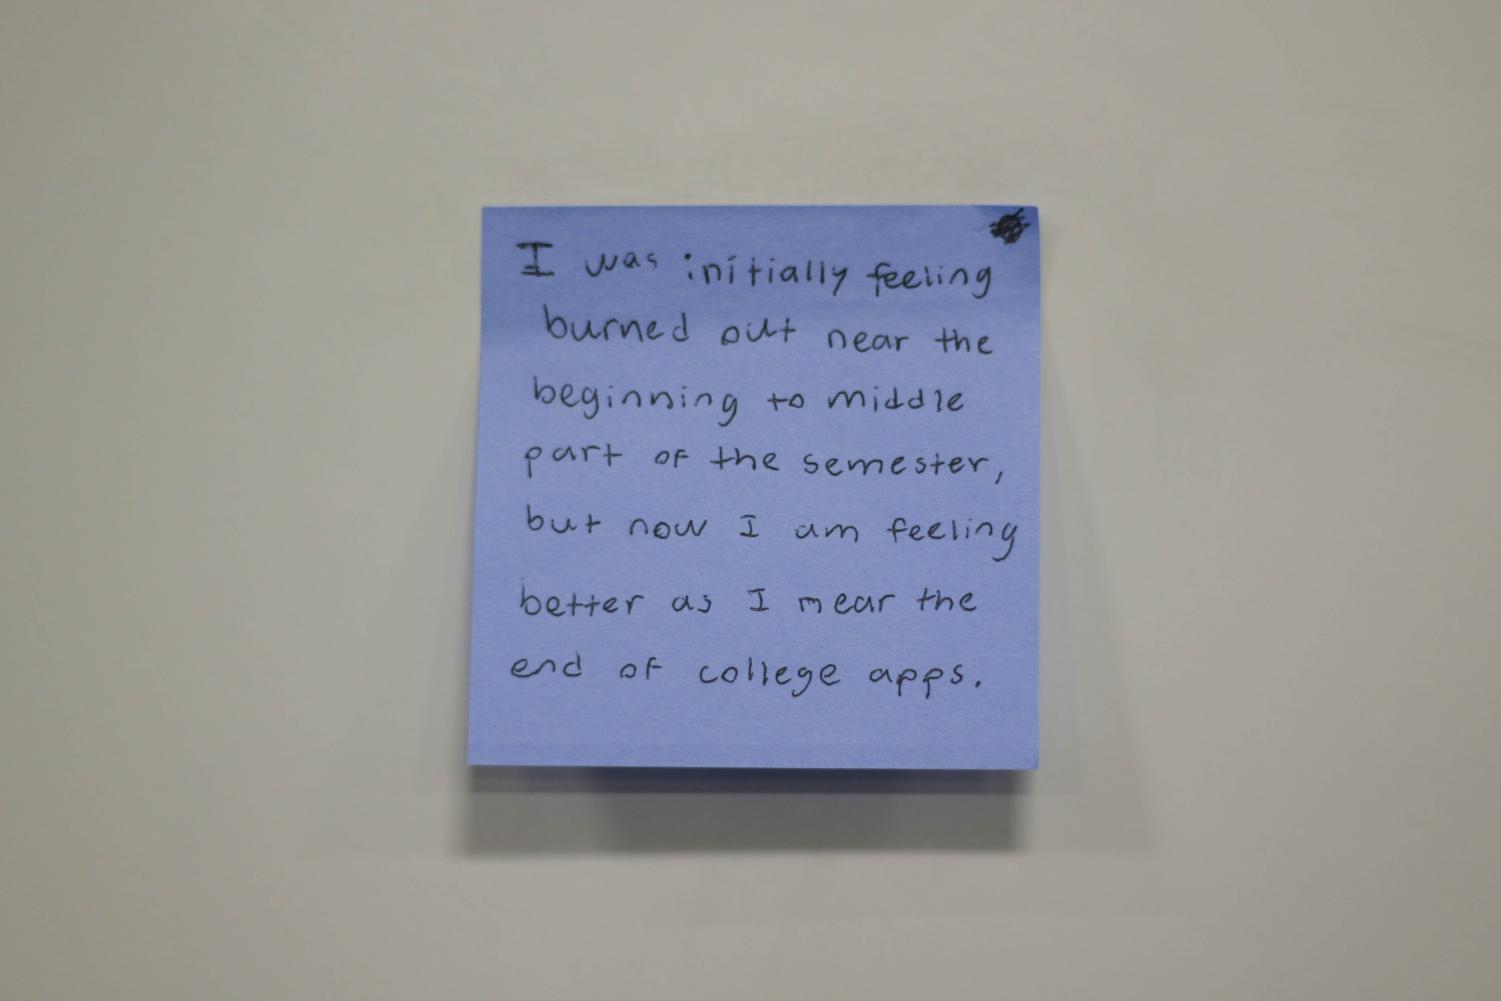 I was initially feeling
burned out near the
beginning to middle
part of the semester,
but now I am feeling
better as I near the
end of college apps.